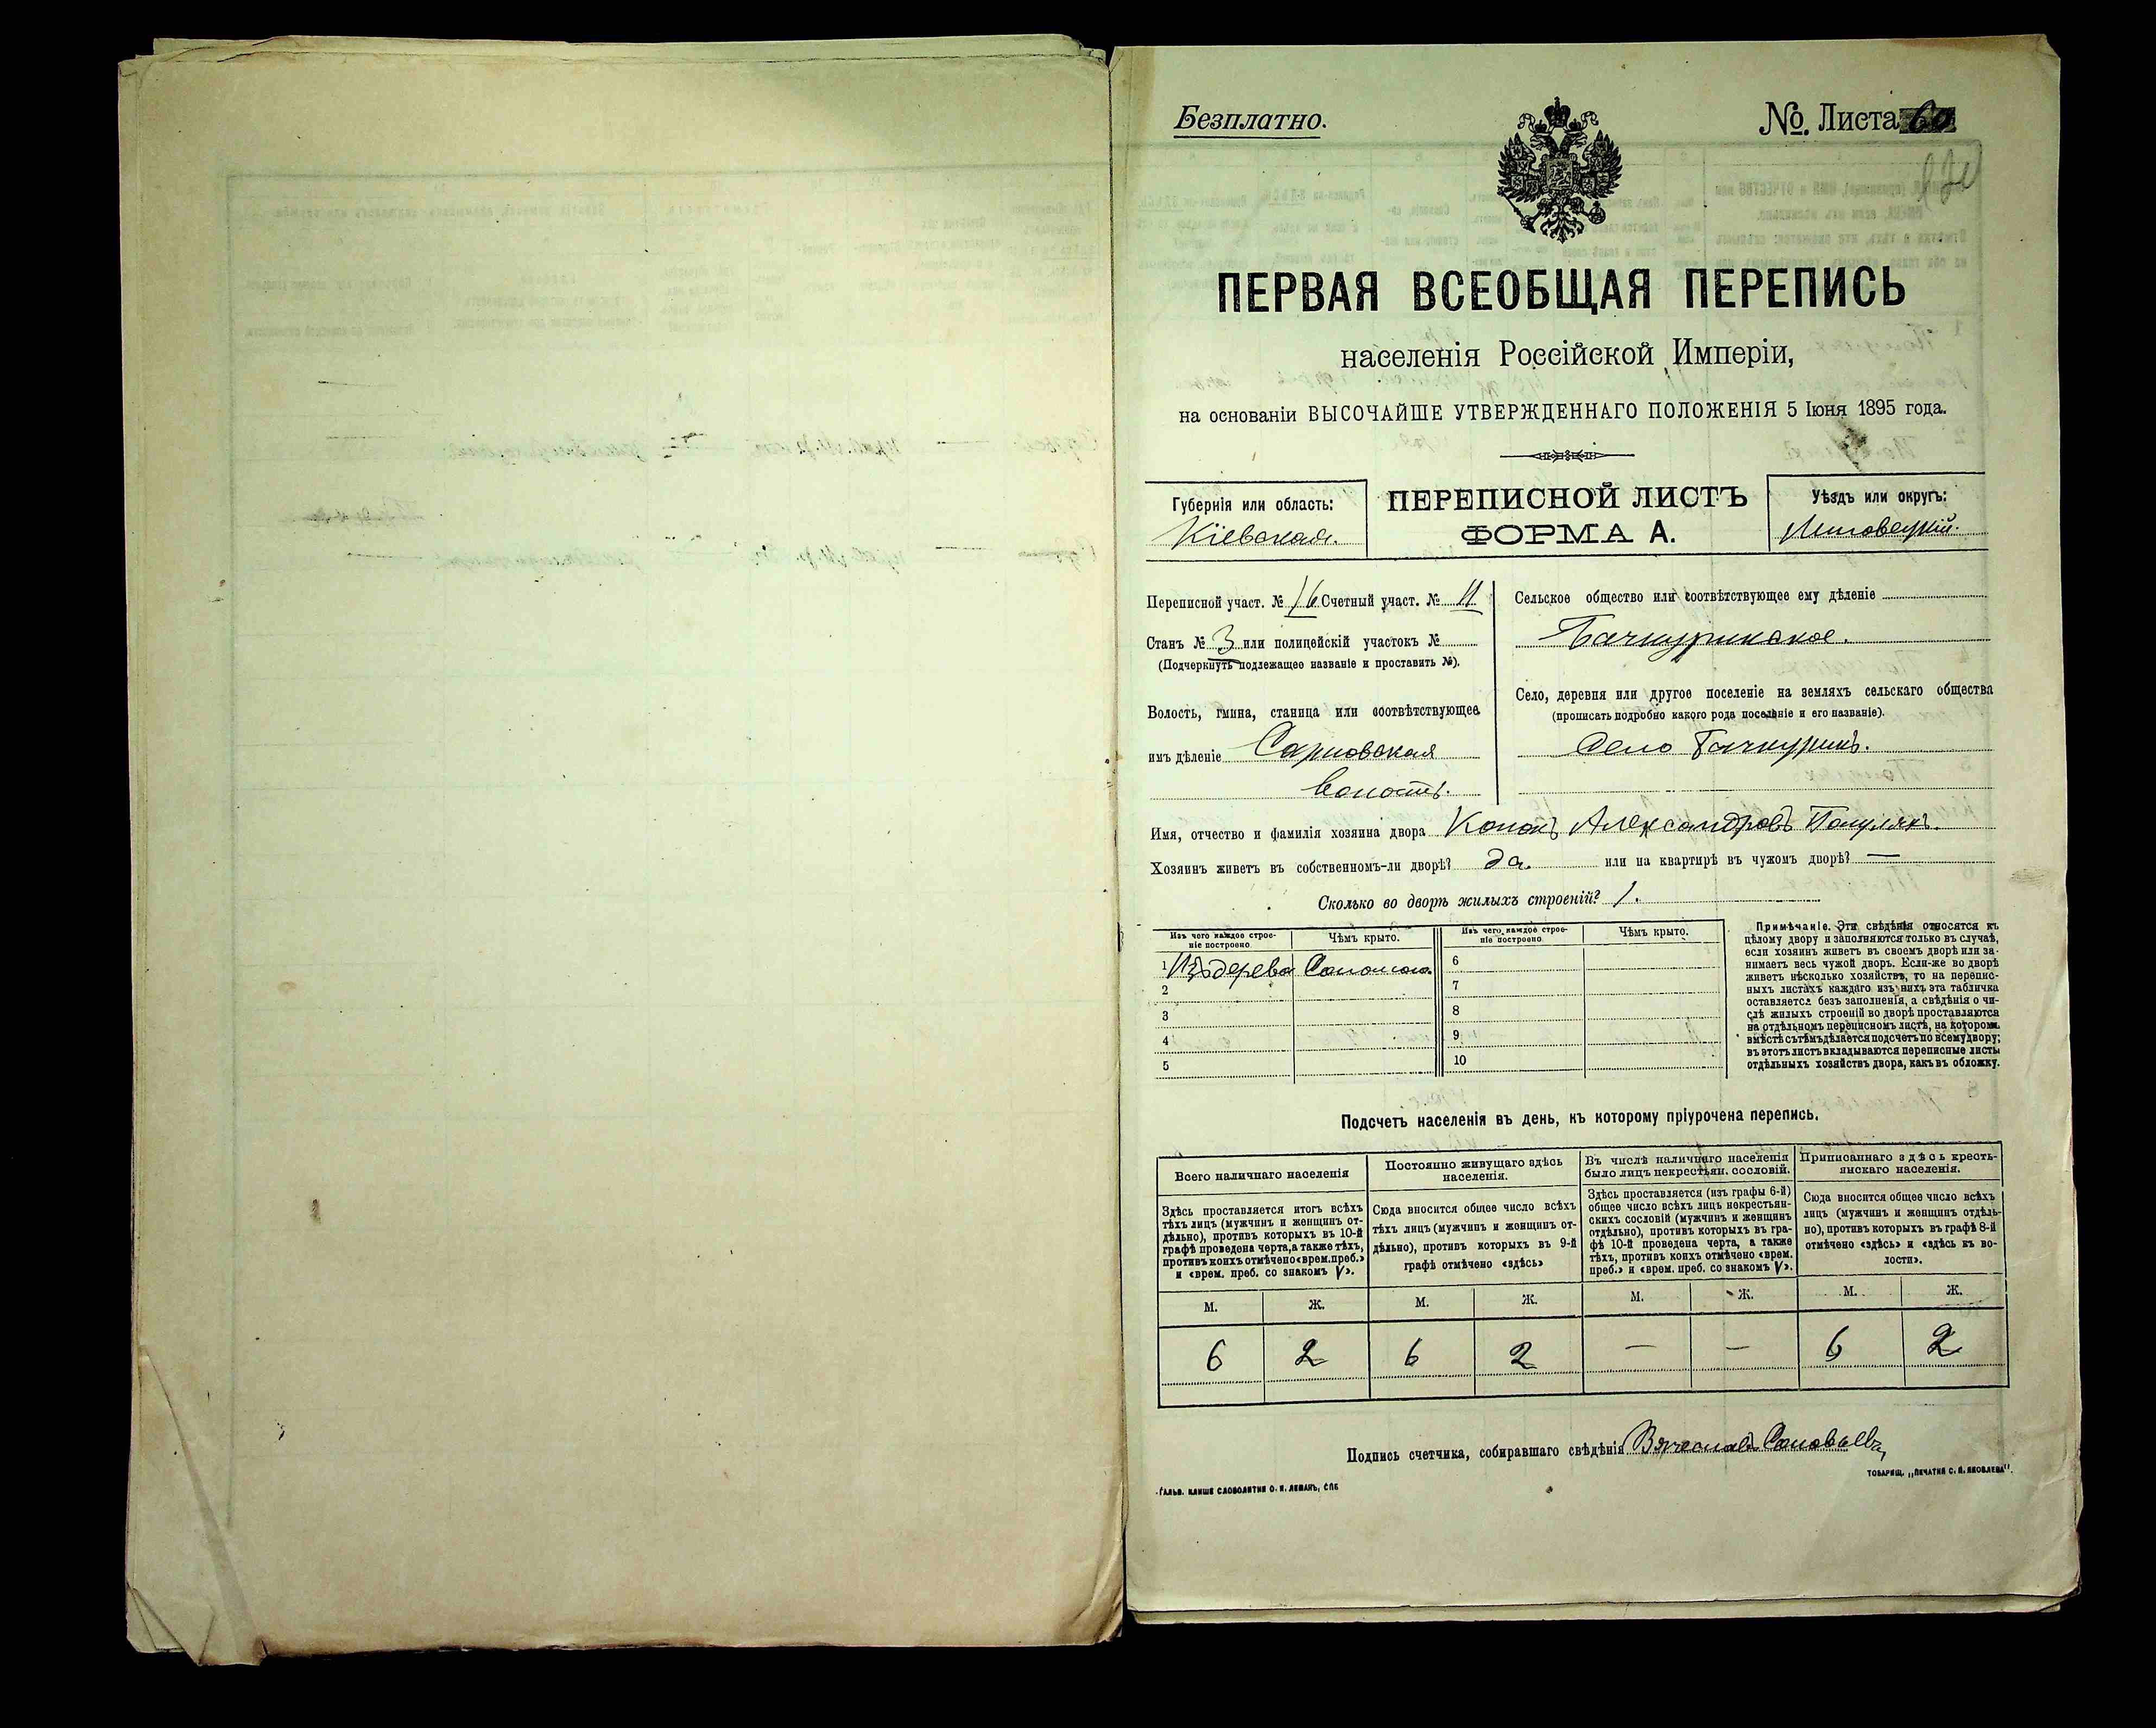 Безплатно.
№. Листа 60
ПЕРВАЯ ВСЕОБЩАЯ ПЕРЕПИСЬ
населенія Россійской Имперіи,
на основаніи ВЫСОЧАЙШЕ УТВЕРЖДЕННАГО ПОЛОЖЕНІЯ 5 Іюня 1895 года.
Губернія или область:
Кіевская.
ПЕРЕПИСНОЙ ЛИСТЪ
ФОРМА А.
Уѣздъ или округъ:
Липовецкій.
Переписной участ. № 16 Счетный участ. № 11
Станъ № 3 или полицейскій участокъ №
(Подчеркнуть подлежащее названіе и проставить №).
Волость, гмина, станица или соотвѣтствующее
имъ дѣленіе
волость.
Сельское общество или соотвѣтствующее ему дѣленіе
Бачкуринское.
Село, деревня или другое поселеніе на земляхъ сельскаго общества
(прописать подробно какого рода поселеніе и его названіе).
Село Бачкуринъ.
Имя, отчество и фамилія хозяина двора Кононъ Александровъ
Хозяинъ живетъ въ собственномъ-ли дворѣ? да. или на квартирѣ въ чужомъ дворѣ? —
Сколько во дворѣ жилыхъ строеній? 1.
Изъ чего каждое строе-
ніе построено
Чѣмъ крыто.
Изъ чего каждое строе-
ніе построено
Чѣмъ крыто.
1 Изъ дерева Соломою
2
3
4
5
6
7
8
9
10
Примѣчаніе. Эти свѣдѣнія относятся къ
цѣлому двору и заполняются только въ случаѣ,
если хозяинъ живетъ въ своемъ дворѣ или за-
нимаетъ весь чужой дворъ. Если-же во дворѣ
живетъ нѣсколько хозяйствъ, то на перепис-
ныхъ листахъ каждаго изъ нихъ эта табличка
оставляется безъ заполненія, а свѣдѣнія о чи-
слѣ жилыхъ строеній во дворѣ проставляются
на отдѣльномъ переписномъ листѣ, на которомъ
вмѣстѣ съ тѣмъ дѣлается подсчетъ по всему двору;
въ этотъ листъ вкладываются переписные листы
отдѣльныхъ хозяйствъ двора, какъ въ обложку.
Подсчетъ населенія въ день, къ которому пріурочена перепись.
Всего наличнаго населенія
Здѣсь проставляется итогъ всѣхъ
тѣхъ лицъ (мужчинъ и женщинъ от-
дѣльно), противъ которыхъ въ 10-й
графѣ проведена черта, а также тѣхъ,
противъ коихъ отмѣчено «врем. преб.»
и «врем. преб. со знакомъ V».
Постоянно живущаго здѣсь
населенія.
Сюда вносится общее число всѣхъ
тѣхъ лицъ (мужчинъ и женщинъ от-
дѣльно), противъ которыхъ въ 9-й
графѣ отмѣчено «здѣсь»
Въ числѣ наличнаго населенія
было лицъ некрестьян. сословій.
Здѣсь проставляется (изъ графы 6-й)
общее число всѣхъ лицъ некрестьян-
скихъ сословій (мужчинъ и женщинъ
отдѣльно), противъ которыхъ въ гра-
фѣ 10-й проведена черта, а также
тѣхъ, противъ коихъ отмѣчено «врем.
преб.» и «врем. преб. со знакомъ V».
Приписаннаго здѣсь кресть-
янскаго населенія.
Сюда вносится общее число всѣхъ
лицъ (мужчинъ и женщинъ отдѣль-
но), противъ которыхъ въ графѣ 8-й
отмѣчено «здѣсь» и «здѣсь къ во-
лости».
М. Ж. М. Ж. М. Ж. М. Ж.
6 2 6 2 — — 6 2
Подпись счетчика, собиравшаго свѣдѣнія Вячеславъ Соловьевъ
ТОВАРИЩ. „ПЕЧАТНЯ С. П. ЯКОВЛЕВА".
ГАЛЬВ. КЛИШЕ СЛОВОЛИТНИ О. И. ЛЕМАНЪ, СПБ